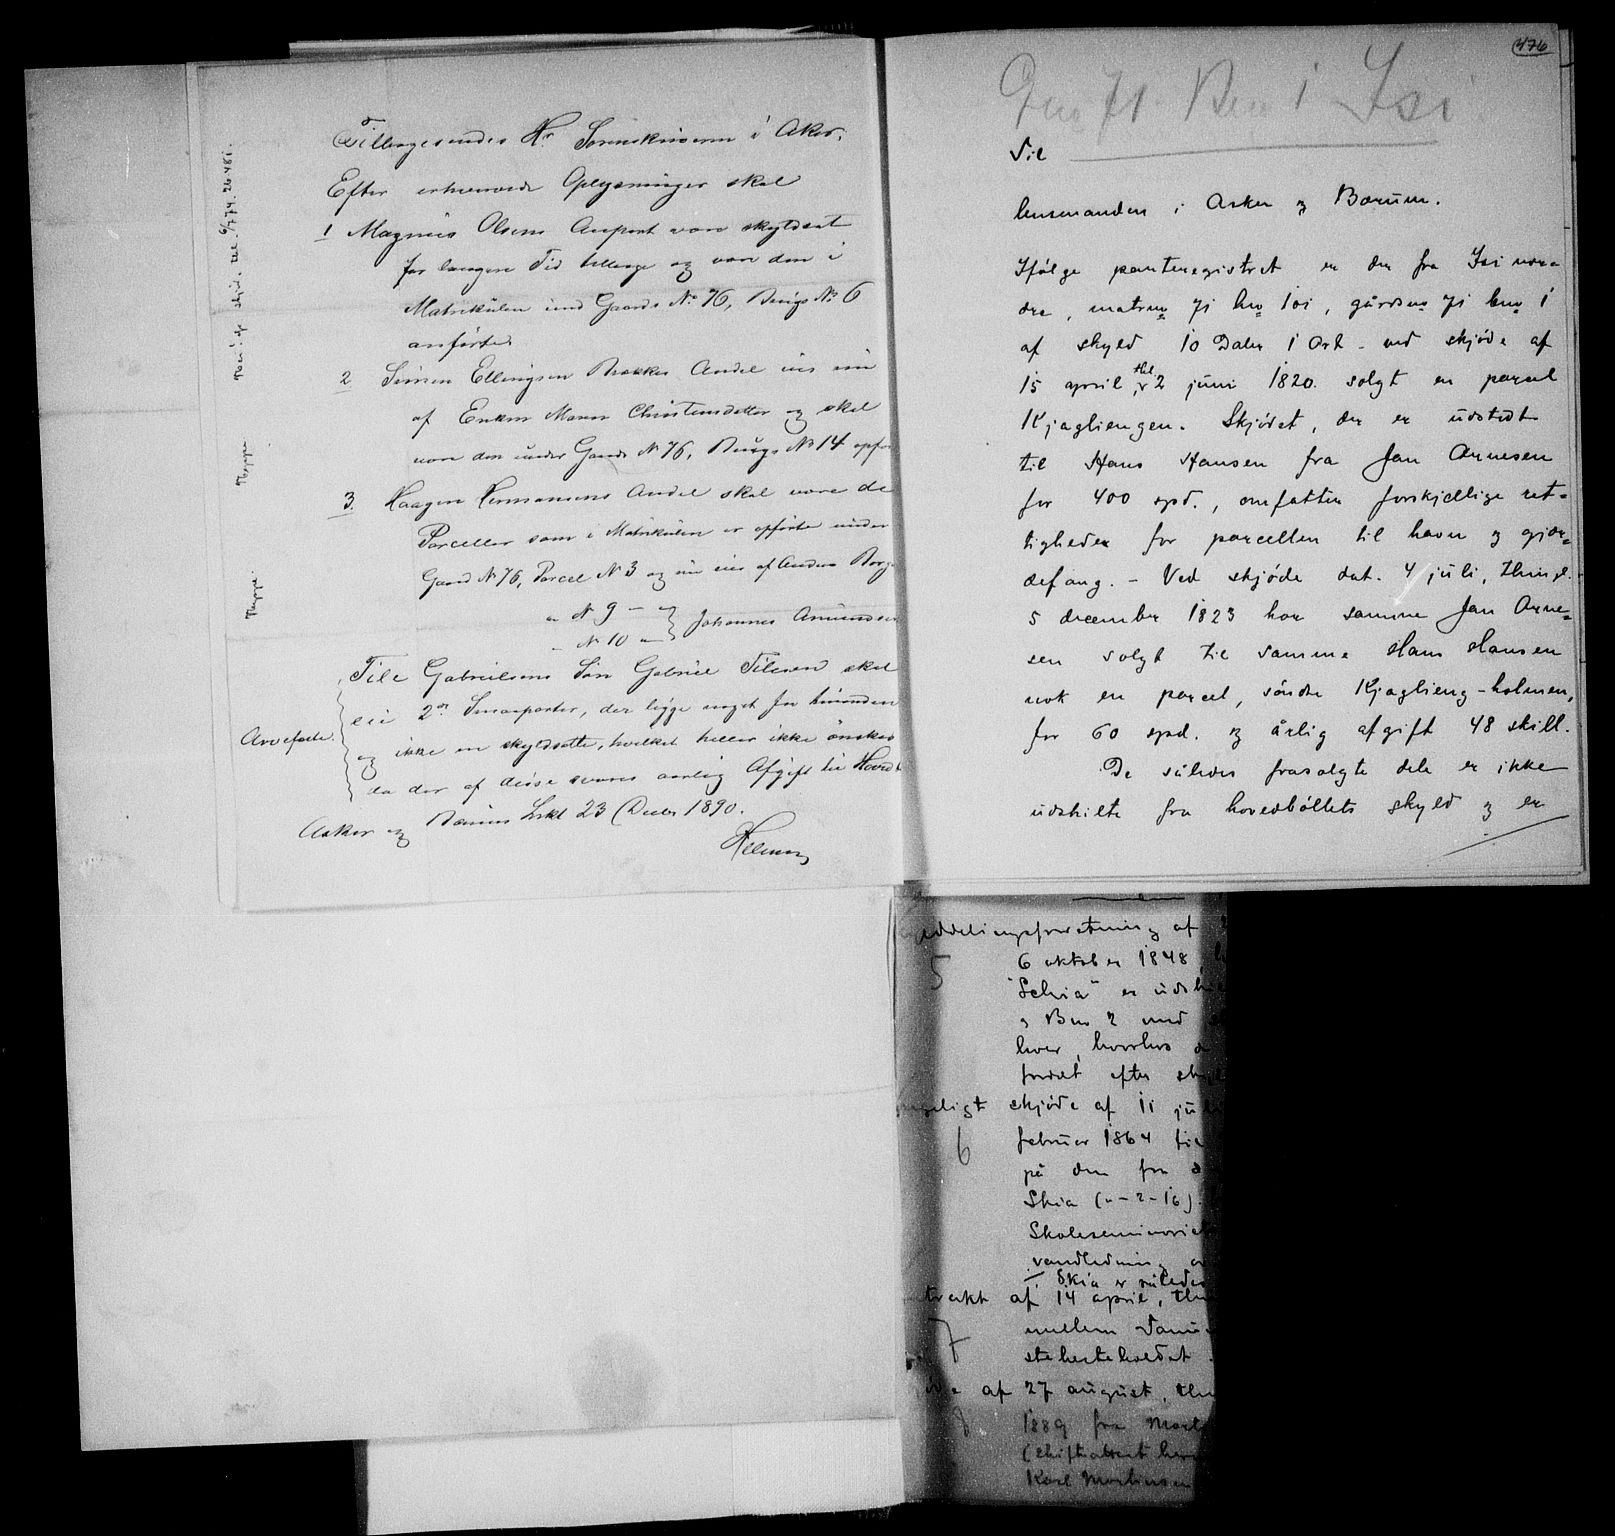 Tilbagesendes Hr Sorenskriveren i Aker.
Efter erhvervede Oplysninger skal
1 Magnus Olsens Anpart være skyldsat
for længere Tid tilbage og være den i
Matrikülen und Gaards No 76, Brugs No 6
anførte.
2 Simen Ellingsen Bakkes Andel eies nu
af Enken Maren Christensdatter og skal
være den under Gaards No 76, Brugs No 14 opfø
3. Haagen Hermansens Andel skal være de
Parceller som i Matrikülen er opførte under
Gaard No 76, Parcel No 3 og nu eies af Anders
" No 9 —
" No 10 — } Johannes Amundsen
Arvefæste.
Tile Gabrielsens Søn Gabriel Tilesen skal
eie 2de Smaaparter, der ligge noget fra hinanden
og ikke en skyldsatte, hvilket heller ikke ønskes
da der af disse svares aarlig Afgift til Hoved
Asker og Bærum Lskt 23 Decbr 1890.
476
Gno 71 Bno 1 Isi
Til
lensmanden i Asker og Bærum.
Ifølge panteregistret er der fra Isi nor-
dre, matrno 71 lno 101, gårdsno 71 bno 1
af skyld 10 Daler 1 Ort - ved skjøde af
15 april thl 2 juni 1820 solgt en parcel
Kjagliengen. Skjødet, der er udstedt
til Hans Hansen fra Jan Arnesen
for 400 spd., omfatter forskjellige ret-
tigheder for parcellen til havn og gjær-
defang. - Ved skjøde dat. 4 juli, thingl.
5 december 1823 har samme Jan Arne-
sen solgt til samme Hans Hansen
nok en parcel, søndre Kjaglieng-holmen,
for 60 spd. og årlig afgift 48 skill.
De således frasolgte dele er ikke
udskilte fra hovedbøllets skyld og er
uddelingsforretning af
5 6 oktober 1848
"Schia" er udski
og Bno 2 med
hver, hvorhos
fordelt efter
skjøde af 11 juli
6 februar 1864
på den fra
Skia (" - 2 - 16).
Skoleseminariet
vandledning
Skia er således
trakt af 14 april, thi
7 mellem
af 27 august, thi
8 1889 fra
(skifteattest
Karl Martinsen